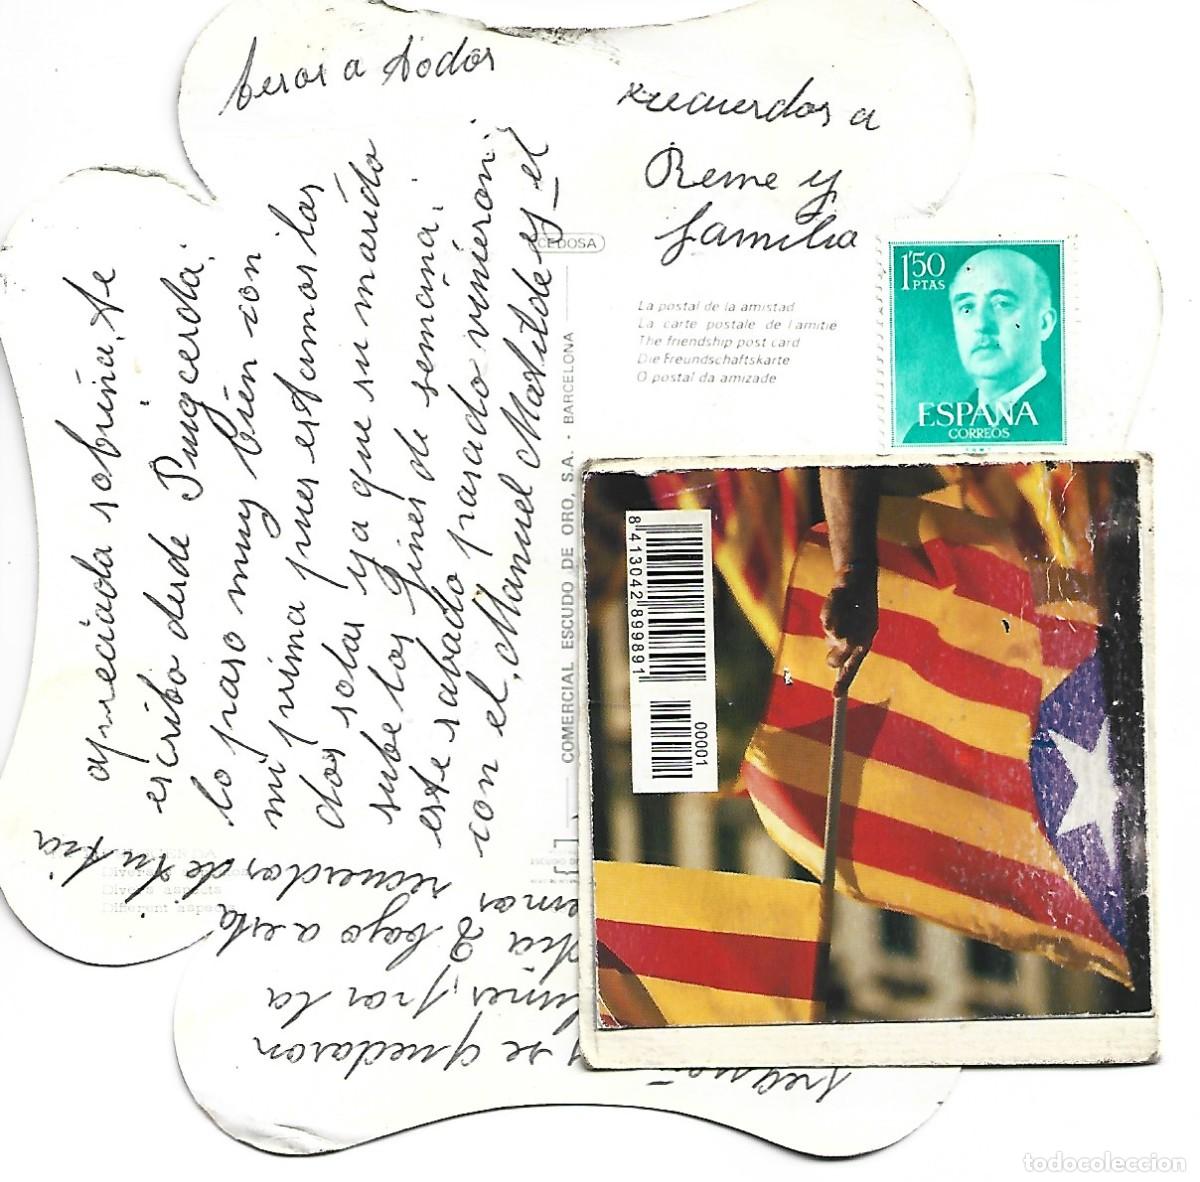 besos a todos
recuerdos a
Reme y
familia
apreciada sobrina, te
escribo desde Puigcerda.
lo paso muy bien con
mi prima pues estamos las
dos solas ya que su marido
sube los fines de semana.
este sabado pasado vinieron
con el, Manuel Matilde y el
y se quedaron
por la
2 bajo a esta
recuerdos de tu tia
CEDOSA
La postal de la amistad
La carte postale de l'amitie
The friendship post card
Die Freundschaftskarte
O postal da amizade
COMERCIAL ESCUDO DE ORO, S.A. - BARCELONA
Divers aspects
Different aspects
1'50
PTAS
ESPAÑA
CORREOS
8 413042 899891
00001
todocoleccion